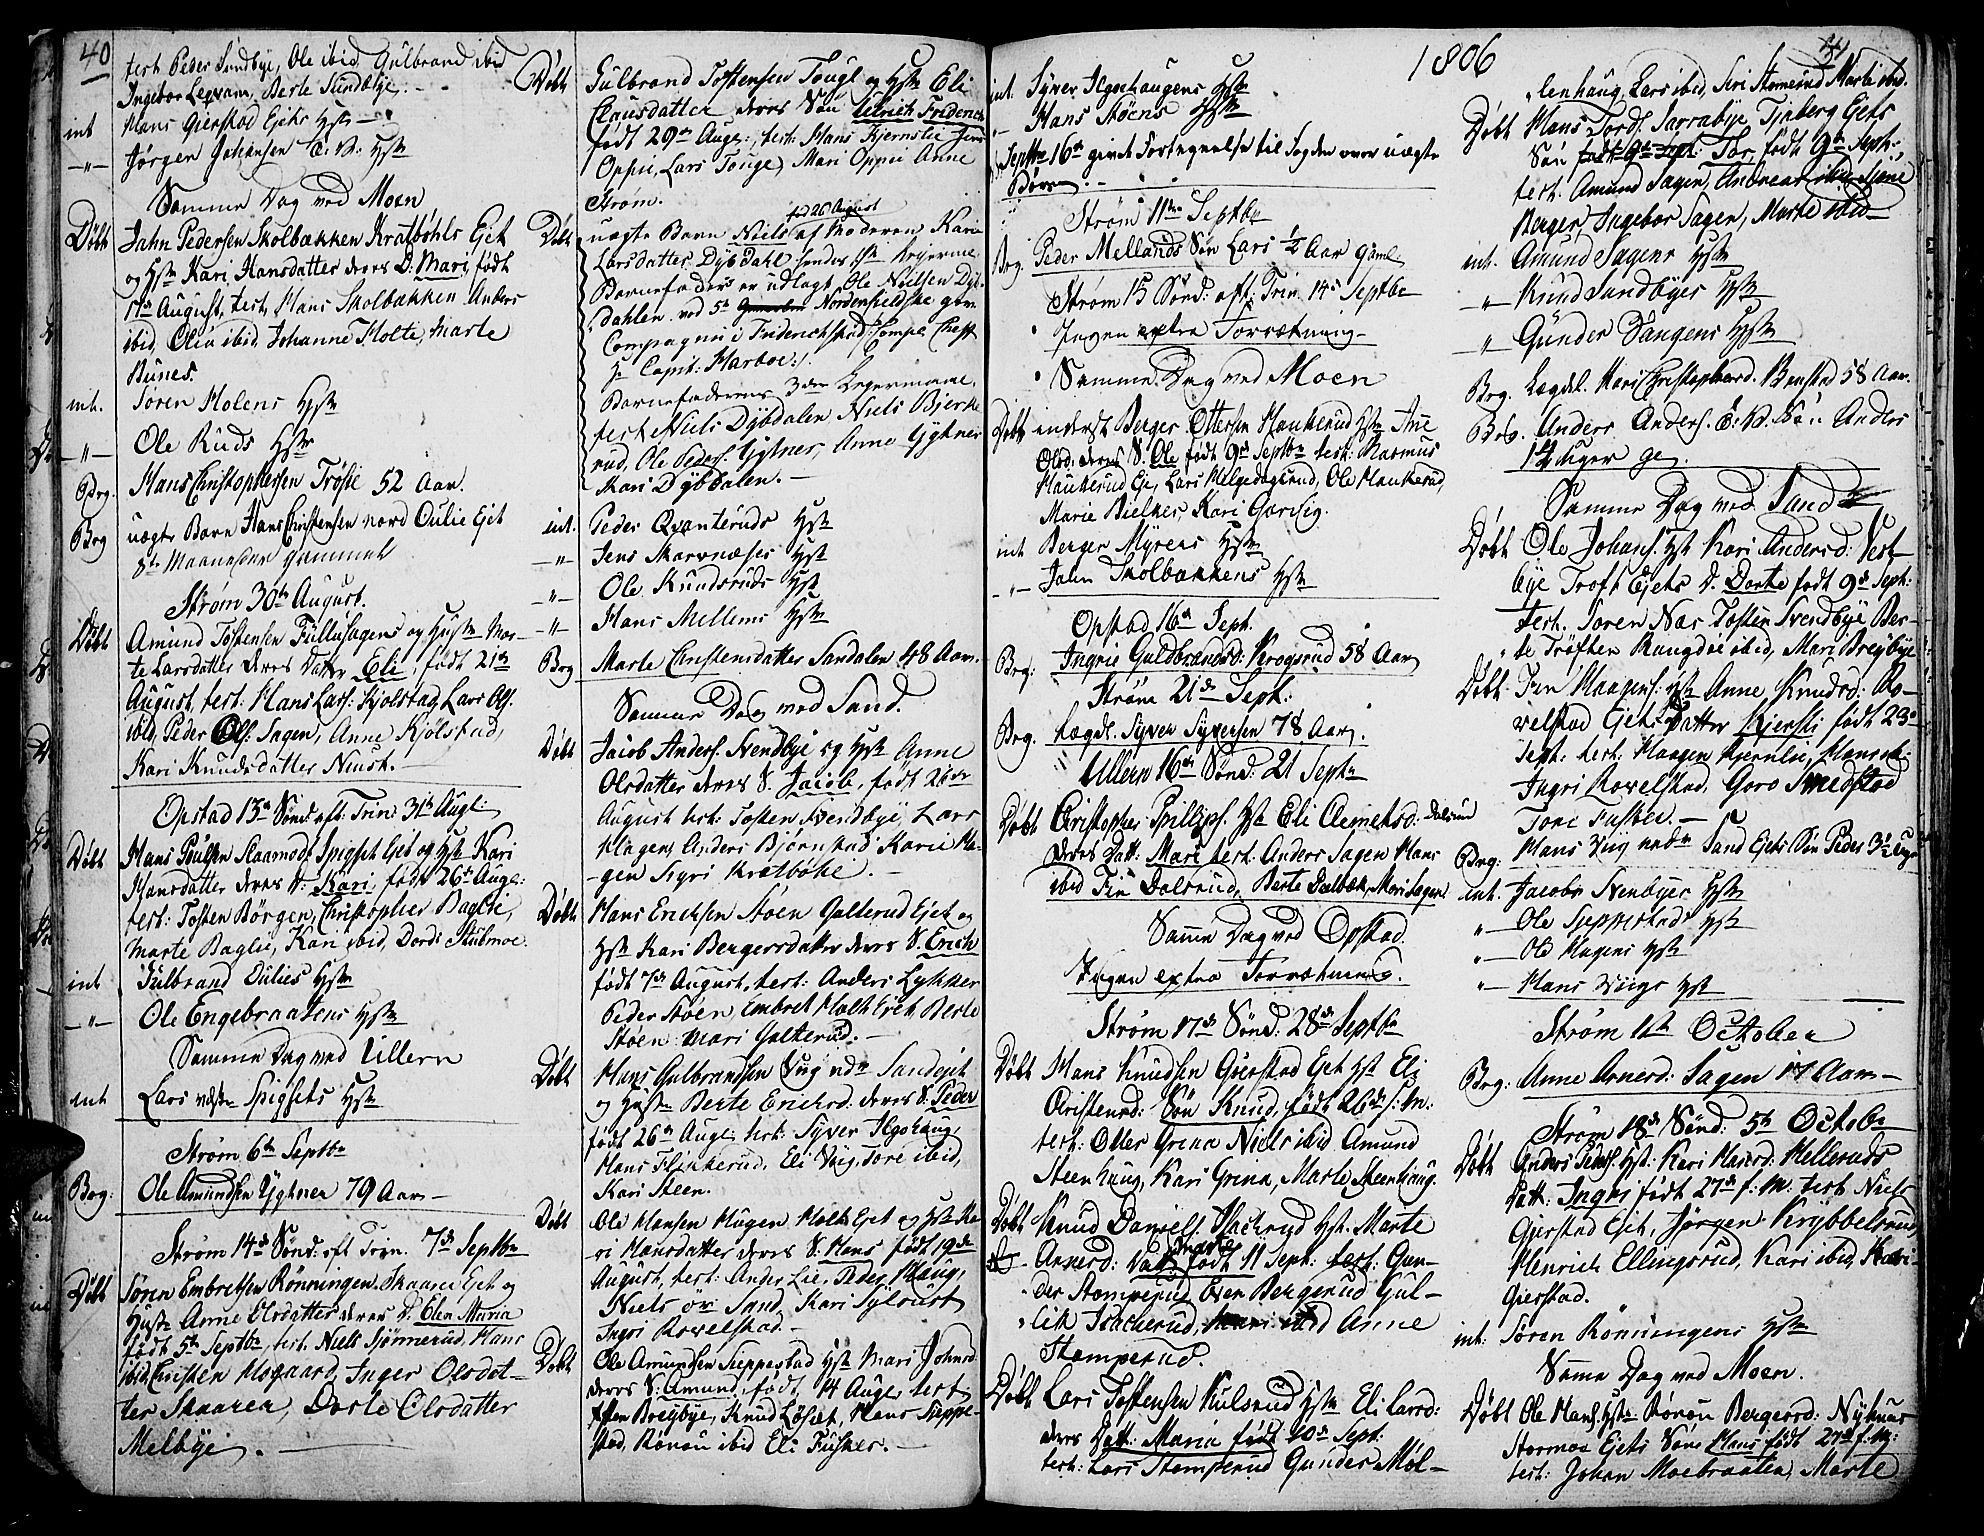 40
test. Peder Sundbye, Ole ibid, Gulbrand ibid
Ingebor Leqvam, Berte Sundbye.
int Hans Gierstad Ejets Hst
—"— Jørgen Johansen E: V: Hst
Samme Dag ved Moen
Døbt Jahn Pedersen Skolbækken Kratbøhls Ejet
og Hst Kari Hansdatter deres D: Mari, født
17de August, test. Hans Skolbækken Anders
ibid Oliv ibid, Johanne Holte, Marte
Bunes.
int. Soren Molens Hst
—"— Ole Ruds Hst
Brg. Hans Christophersen Trøfte 52 Aar.
Brg uægte Barn Hans Christensen nord Oulie Ejet
8te Maaneder gammel
Strøm 30te August.
Døbt Amund Tostensen Füllüsagens og Hustr Mar-
te Larsdatter deres Datter Eli, født 21de
August, test. Hans Lars: Kjolstad, Lars Ols.
ibid, Peder Ols. Sagen, Anne Kjølstad,
Kari Knudsdatter Neust.
Opstad 13de Sønd: aft: Trin: 31te Augl:
Døbt Hans Poulsen Slaamods Spigset Ejet og Hst Kari
Hansdatter deres D: Kari, født 26de Aug:
test: Tosten Børgen, Christopher Baglie,
Marte Baglie, Kari ibid, Dorde Stubmoe.
int Gulbrand Oulies Hst
—"— Ole Engebraatens Hst
Samme Dag ved Ullern
int Lars Spigsets Hst
Strøm 6te Septbr
Brg: Ole Amundsen Ygtner 79 Aar
Strøm 14de Sønd: aft Trin. 7de Septbr
Døbt Søren Embretsen Rønningen Skaaren Ejet og
Hust. Anne Olsdatter deres D. Elen Maria
født 5te Septbr, test: Niels Hans
ibid, Christen Mogaard, Inger Olsdat-
ter Skaaren, Dorte Olsdatter
Melbye.
Døbt Gulbrand Tostensen Tougl og Hst Eli
Clausdatter deres Søn Ulrich Friderich
født 29de Aug:, test: Hans Kjernslie Jens
Oppie, Lars Touge, Mari Oppie Anne
Strøm.
fød 20 August
Døbt uægte Barn Niels af Moderen Kari
Larsdatter Dybdahl hendes 1ste Leyerm.
Barnefader er udlagt Ole Nielsen Dyb-
dahlen ved 5te Nordenfieldske
Compagnie i Friderichstad, Compl: Cheff
Hr Capit: Harboe:
Barnefaderens 3die Legermaal.
test. Niels Dybdalen Niels Bjerke
rud, Ole Peders. Ygtner, Anne Ygtner
Kari Dybdalen.
int. Peder Qvanteruds Hst
—"— Jens Skarvnæses Hst
—"— Ole Knudsruds Hst
—"— Hans Mellems Hst
Brg Marte Christensdatter Sandalen 48 Aar.
Samme Dag ved Sand.
Døbt Jacob Anders. Svendbye og Hst Anne
Olsdatter deres S. Jacob, født 26de
August test. Tosten Svendbye, Lars
Hagen, Anders Bjørnstad Karie Ha-
gen Siyri Kratbøhe.
Døbt Hans Erichsen Støen Galterud Ejet og
Hst Kari Bergersdatter deres S. Erich
født 7de August, test: Anders Lykker
Peder Støen Embret Holt Erik Berte
Støen Mari Galterud.
Døbt Hans Gulbrandsen Viig ndr Sand ejet
og Hustr Berte Ericksd: deres S: Peder
født 26de Augl: test: Syver Ilgohaug,
Hans Flikkerud, Eli Viig, Tore ibid,
Kari Steen.
Døbt Ole Hansen Hugen Holt Ejet og Hst Ka-
ri Hansdatter deres S: Hans født 19de
August, test: Ander Lie, Peder Haug,
Niels Sand, Kari Sylvust
Ingri Rovelstad.
Døbt Ole Amundsen Sieppestad Hst Mari Johnsd:
deres S: Amund, født 14 Aug: test
Breybye, Knud Løset, Hans Sieppe-
stad, Rønou ibid Eli Fusker.
1806
int. Syver Ilgohaugens Hst
—"— Hans Støens Hst
Septbr 16de givet Fortegnelse til Fogden over uægte
Børn.
Strøm 11te Septbr
Brg. Peder Mellands Søn Lars ½ Aar gaml
Strøm 15 Sønd: aft: Trin. 14de Septbr
Ingen extra Forrætning
Samme Dag ved Moen
Døbt inderst Berger Ottersen Haukerud Hst Ane
Olsd: deres S. Ole født 9de Septbr test: Rasmus
Haukerud Eje, Lars Helgedagsrud, Ole Haukerud,
Marie Bielker, Kari Garisiig.
int Berger Myrens Hst
—"— Jahn Skolbækkens Hst
Opstad 16de Sept.
Brg: Ingrie Guldbrandsd: Krogsrud 58 Aar
Strøm 21de Sept:
Brg. Lægdl. Syver Syversen 78 Aar.
Ullern 16de Sønd: 21 Septbr
Døbt Christopher Phillips. Hst Eli Clemetsd: Dalsrud
deres Datt: Mari test: Anders Sagen Hans
ibid Fin Dalsrud, Berte Dalbæk, Mari Sagen
Samme Dag ved Opstad.
Ingen extra Forrætning.
Strøm 17de Sønd: 28de Septbr
Døbt Hans Knudsen Gierstad Ejet Hst Eli
Christensd: Søn Knud, født 26de s: M:
test: Otter Grina Niels ibid Amund
Steenhaug, Kari Grina, Marte Steenhaug.
Døbt Knud Daniels. Ilacherud Hst: Marte
Arnesd: Datt: Marte født 11 Sept: test: Gun-
der Stomperud Even Bergerud Gul-
lik Isacherud, ibid Anne
Stomperud.
Døbt Lars Tostensen Kulsrud Hst Eli Larsd:
deres Datt: Maria født 20de Sept:
test: Lars Stomperud Gunder Møl-
41
lenhaug, Lars ibid, Siri Stomerud Marte ibid.
Døbt Hans Tords. Sarrabye Tjaberg Ejets
Søn født 9de Sept: Tor, født 9de Sept:
test: Amund Sagen, Andreas ibid
Berger, Ingebor Sagen, Marte ibid
int. Amund Sagens Hst
—"— Knud Sandbyes Hst
—"— Günder Vangens Hst
Brg. Lægdl. Kari Christophersd. Banstad 58 Aar.
Brg. Anders Anders: E: V. Søn Anders
14 Uger gl.
Samme Dag ved Sand
Døbt Ole Johans: Hst Kari Andersd: Vest-
bye Troft Ejets D. Dorte født 9de Sept:
test. Soren Nar Tosten Svendbye Ber-
te Trøften Rangdie ibid, Mari Breybye
Døbt. Fin Haagens: Hst Anne Knudsd: Ro-
velstad Ejets Datter Kjersti født 23de
Sept: test: Haagen Kjernlie, Hans ib:
Ingri Rovelstad, Goro Smedstad
Tore Fusker.
Brg: Hans Viig nedr Sand Ejets Søn Peder 3½ Uge
int. Jacobs Svenbyes Hst
—"— Ole Sieppestads Hst
—"— Ole Hugens Hst
"— Hans Viigs Hst
Strøm 1ste October
Brg: Anne Arnesd: Sagen 17 Aar
Strøm 18de Sønd: 5te Octobr
Døbt Anders Peders. Hst: Kari Hansd: Melleruds
Datt: Ingri født 27de f: M: test Niels
Gierstad Ejet, Jørgen Krybbelsrud
Henrich Ellingsrud, Kari ibid, Kari
Gierstad.
int: Søren Rønningens Hst
Samme Dag ved Moen.
Døbt Ole Hans. Hst Rønou Bergersd: Nyhuus
Stormoe Ejets Søn Hans født 27de f: M:
test: Johan Moebraaten, Marte